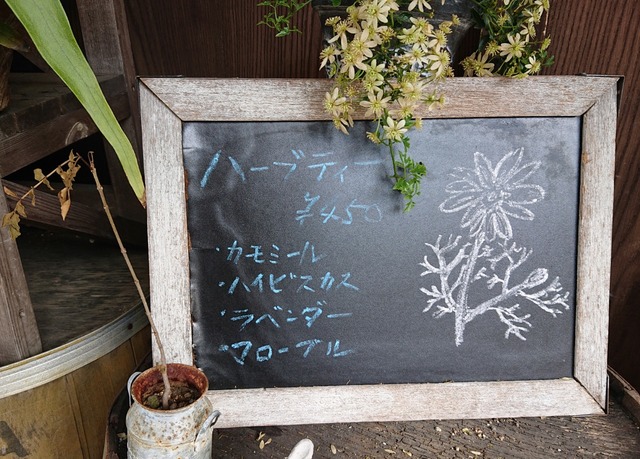 ハーブティー
¥450
・カモミール
・ハイビスカス
・ラベンダー
・マローブール